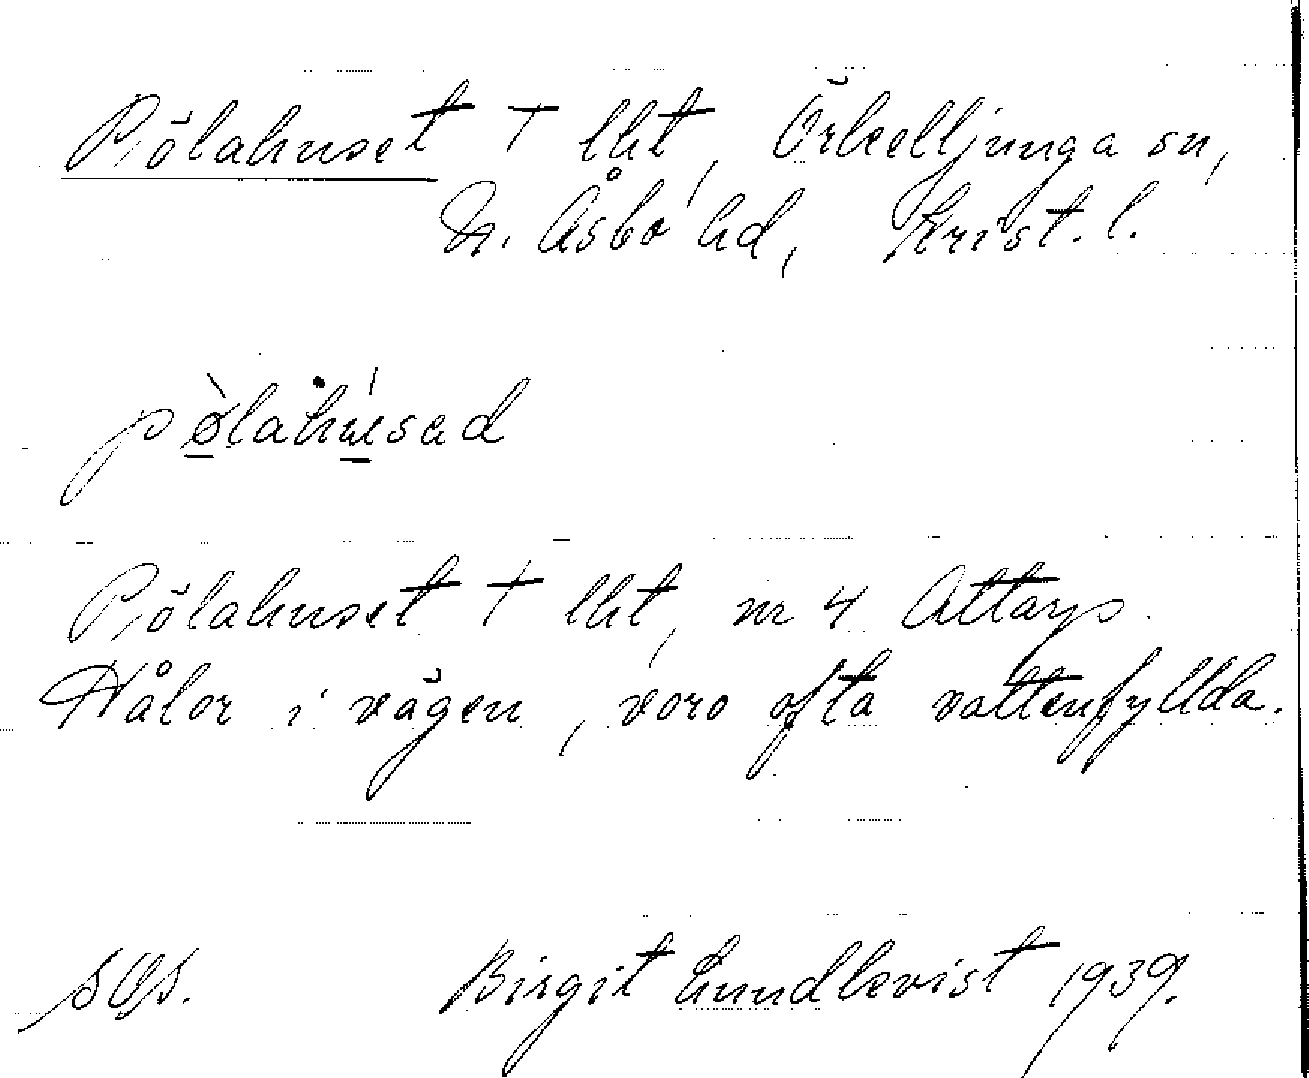 Pölahuset † lht, Örkelljunga sn,
N. Åsbo hd, Krist. l.
pø̀lahúsad
Pölahuset † lht, nr 4 Attarp.
Hålor i vägen, voro ofta vattenfyllda.
SOS. Birgit Lundkvist 1939.